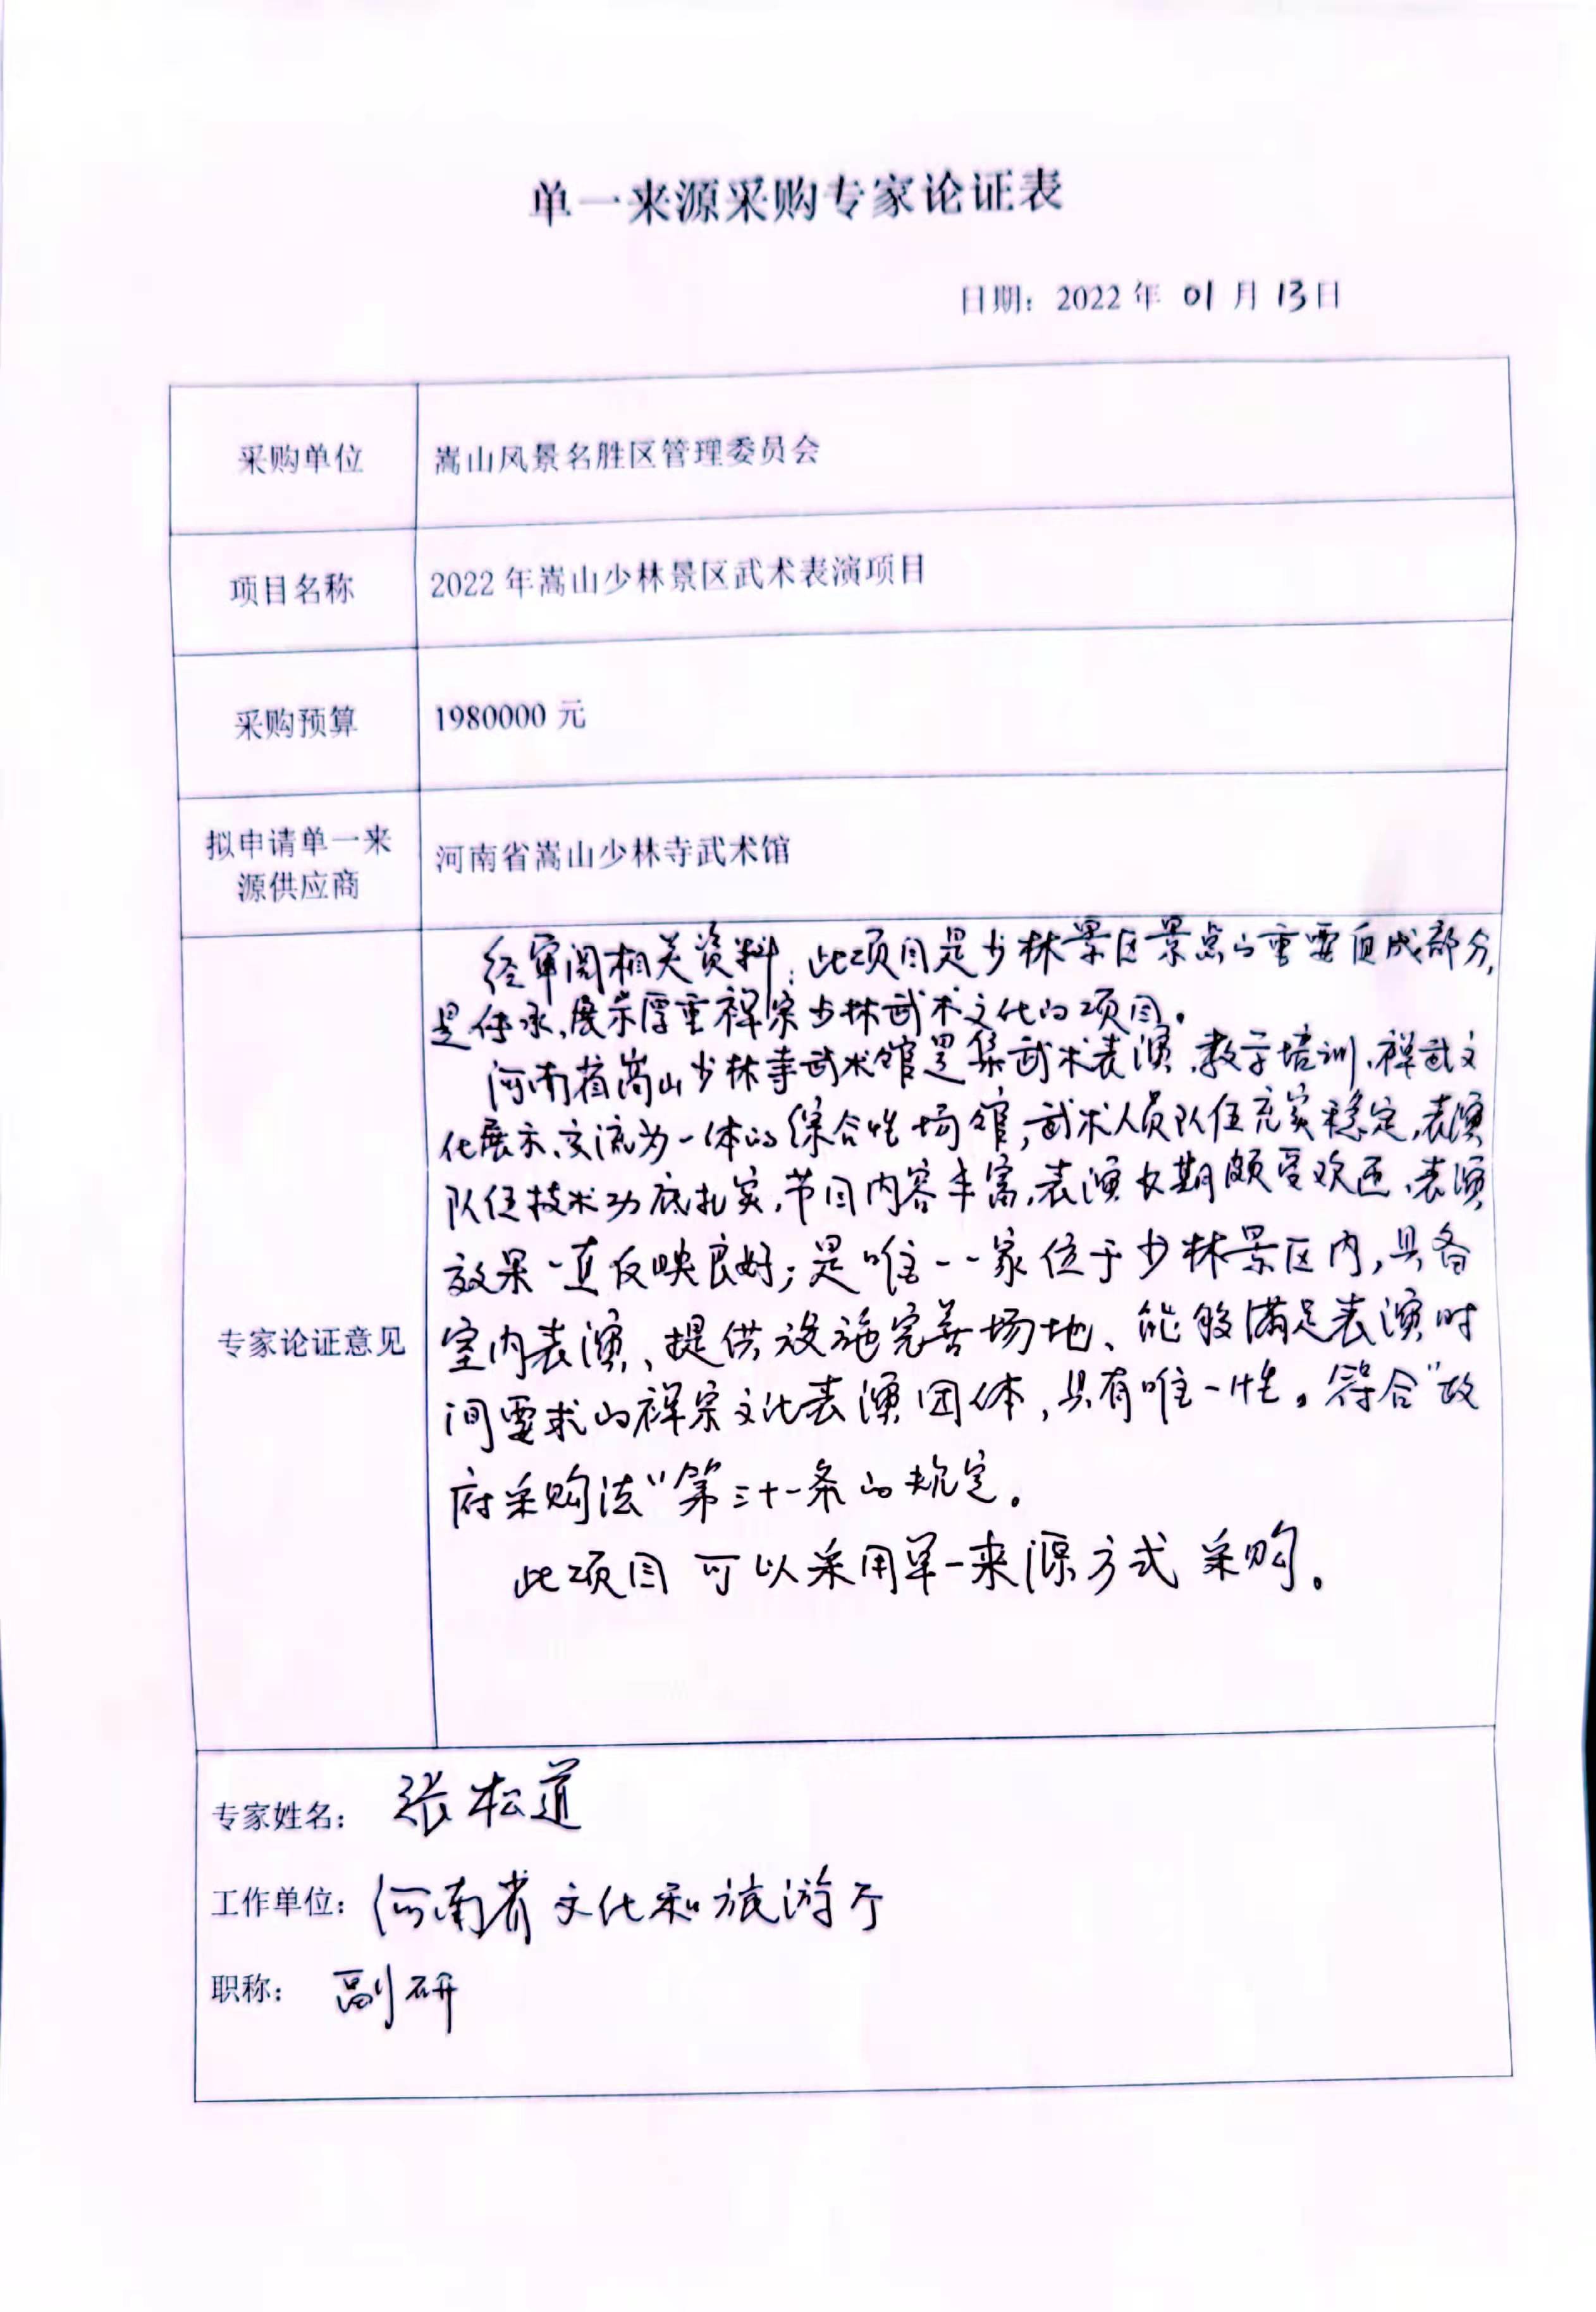 单一来源采购专家论证表
日期：2022年 01月 13日
采购单位
嵩山风景名胜区管理委员会
项目名称
2022年嵩山少林景区武术表演项目
采购预算
1980000元
拟申请单一来
源供应商
河南省嵩山少林寺武术馆
专家论证意见
经审阅相关资料，此项目是少林景区景点的重要组成部分，
是传承、展示厚重禅宗少林武术文化的项目。
河南省嵩山少林寺武术馆是集武术表演、教学培训、禅武文
化展示、交流为一体的综合性场馆，武术人员队伍充实稳定，表演
队伍技术功底扎实，节目内容丰富，表演长期颇受欢迎，表演
效果一直反映良好；是唯一一家位于少林景区内，具备
室内表演、提供设施完善场地、能够满足表演时
间要求的禅宗文化表演团体，具有唯一性。符合“政
府采购法”第三十一条的规定。
此项目可以采用单一来源方式采购。
专家姓名：张松道
工作单位：河南省文化和旅游厅
职称：副研